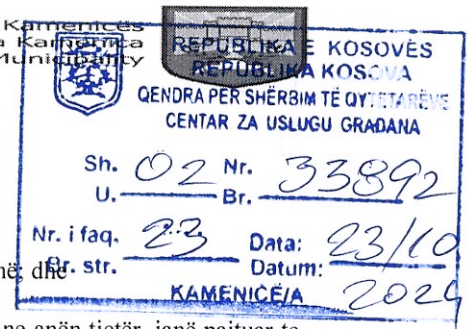 Kamenicës
a Kamenica
Municipality
REPUBLIKA E KOSOVËS
REPUBLIKA KOSOVA
QENDRA PËR SHËRBIM TË QYTETARËVE
CENTAR ZA USLUGU GRAÐANA
Sh. 02 Nr. 33892
U. Br.
Nr. i faq. 23 Data: 23/10
Br. str. Datum:
në; dhe
KAMENICË/A 2024
ne anën tjetër, janë pajtuar te